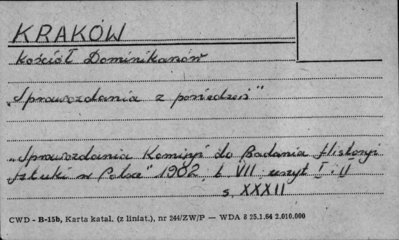 KRAKÓW
Kościół Dominikanów
„Sprawozdania z posiedzeń"
„Sprawozdania Komisyi do Badania Historyi
Sztuki w Polsce" 1902, t. VII zeszyt I i II
s. XXXII
CWD - B-15b, Karta katal. (z liniat.), nr 244/ZW/P — WDA 8 25.1.64 2.010.000